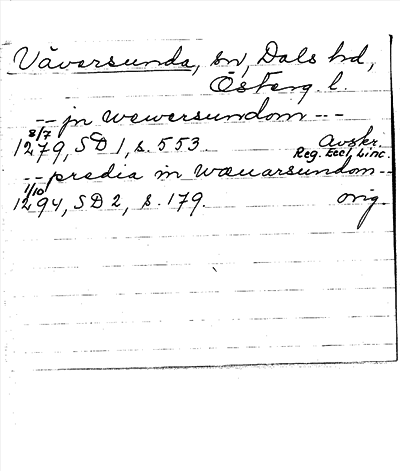 Väversunda, sn, Dals hd,
Österg. l.
-- jn wewersundom --
8/7
1279, SD 1, s. 553. Avskr.
Reg. Eccl. Linc.
-- predia in wæuarsundom --
1/10
1294, SD 2, s. 179. orig.